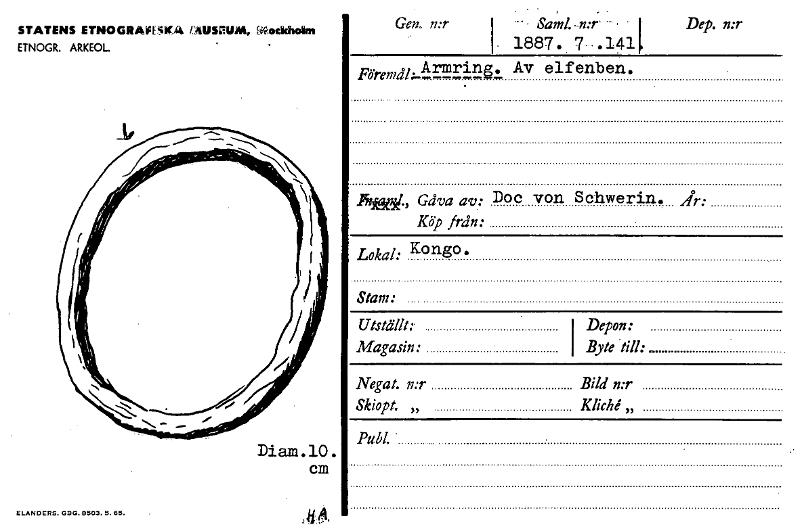 STATENS ETNOGRAFISKA MUSEUM, Stockholm
ETNOGR. ARKEOL.
Diam.10.
cm
ELANDERS. GBG. 8503. 5. 65.
HA
Gen. n:r Saml. n:r Dep. n:r
1887. 7 .141.
Föremål: Armring. Av elfenben.
Insaml., Gåva av: Doc von Schwerin. År:
Köp från:
Lokal: Kongo.
Stam:
Utställt: Depon:
Magasin: Byte till:
Negat. n:r Bild n:r
Skiopt. „ Kliché „
Publ.